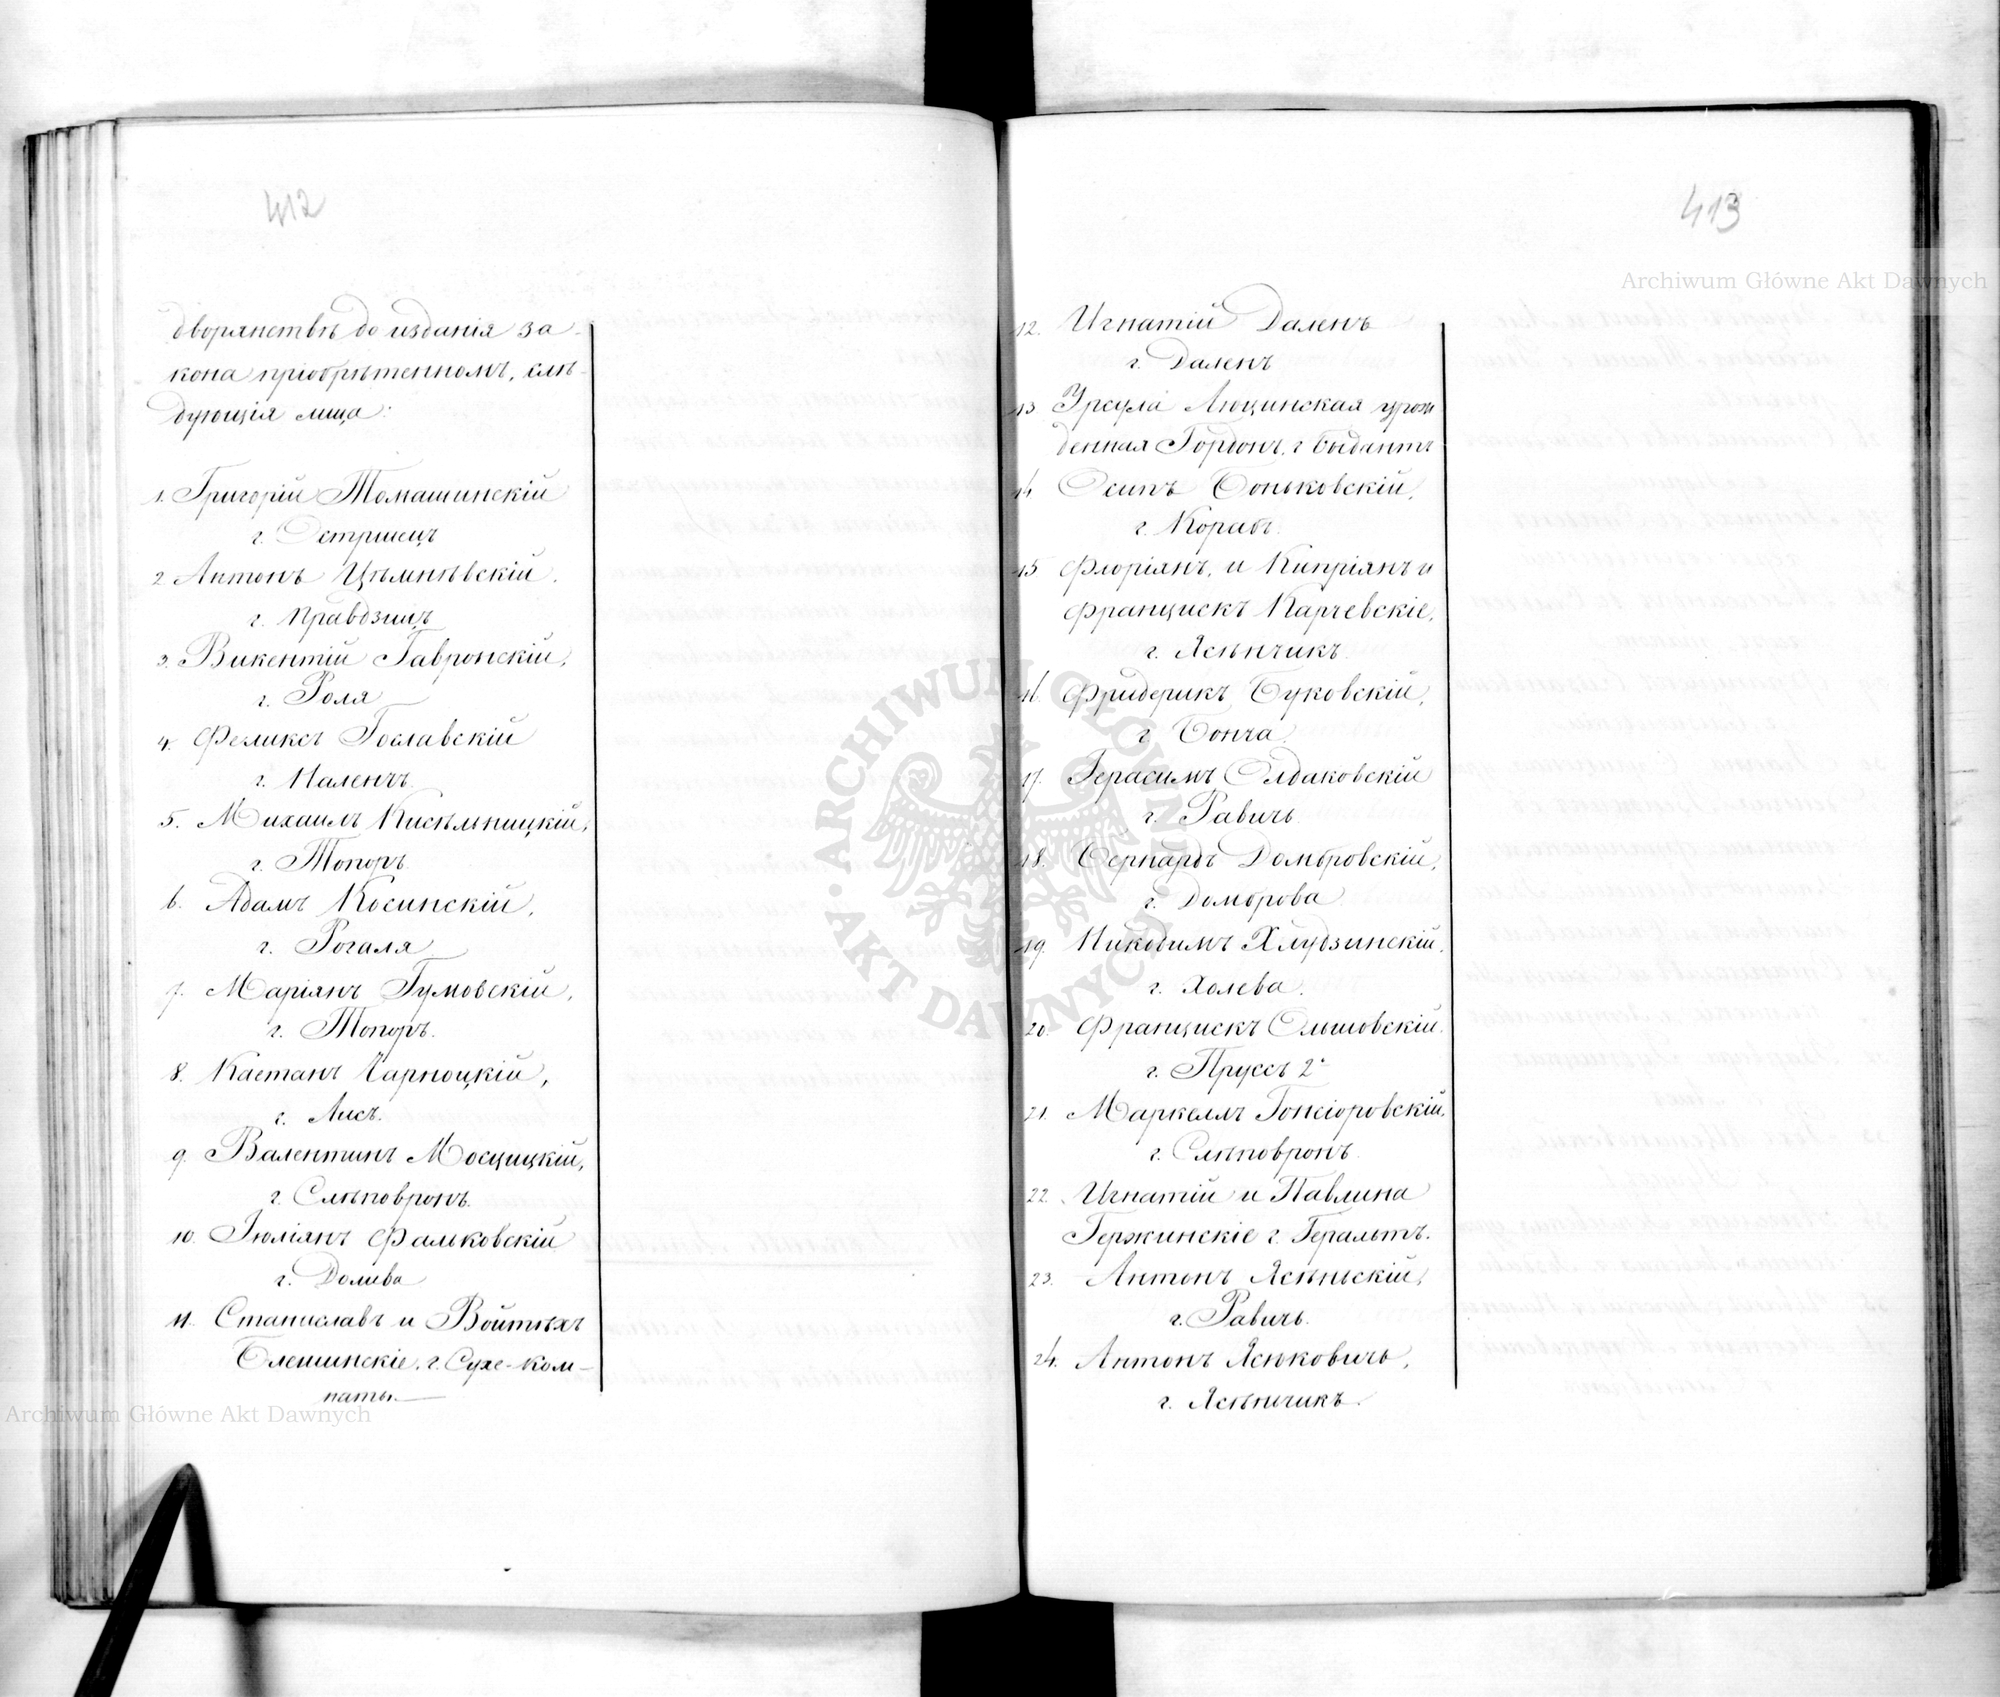 412
дворянствѣ до изданія за-
кона пріобрѣтенномъ, слѣ-
дующія лица:
1. Григорій Томашинскій
г. Остршецъ
2 Антонъ Цѣмнѣвскій.
г. Правдзицъ
3. Викентій Гавронскій,
г. Роля
4. Феликсъ Гославскій
г. Наленчъ.
5. Михаилъ Кисѣльницкій,
г. Топоръ.
6. Адамъ Косинскій,
г. Рогаля
7. Маріянъ Гумовскій,
г. Топоръ.
8. Каетанъ Чарноцкій,
г. Лисъ.
9. Валентинъ Мосцицкій,
г. Слѣповронъ.
10 Юліянъ Фальковскій
г. Долива
11. Станиславъ и Войтѣхъ
Блешинскіе, г. Сухе-ком-
наты.
413
12. Игнатій Даленъ
г. Даленъ
13 Урсула Люцинская урож
денная Гордонъ, г. Быдантъ
14 Осипъ Боньковскій,
г. Корабъ.
15 Флоріянъ, и Кипріянъ и
Францискъ Карчевскіе,
г. Ясѣнчикъ.
16. Фридерикъ Буковскій,
г. Бонча.
17. Герасимъ Олдаковскій
г. Равичь.
18. Бернардъ Домбровскій,
г. Домброва
19. Никодимъ Хлудзинскій,
г. Холева.
20. Францискъ Ольшовскій.
г. Пруссъ 2º
21. Маркеллъ Гонсіоровскій,
г. Слѣповронъ.
22. Игнатій и Павлина
Гержинскіе г. Геральтъ.
23. Антонъ Ясѣньскій,
г. Равичь.
24. Антонъ Ясюковичь,
г. Ясѣнчикъ.
Archiwum Główne Akt Dawnych
ARCHIWUM GŁÓWNE AKT DAWNYCH
Archiwum Główne Akt Dawnych